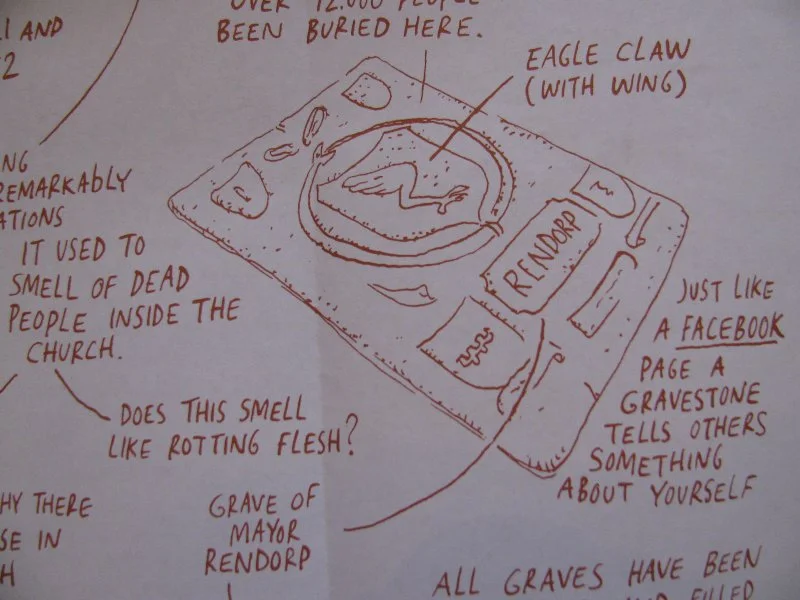 OVER 12.000 PEOPLE
BEEN BURIED HERE.
I AND
2
EAGLE CLAW
(WITH WING)
NG
REMARKABLY
ATIONS
IT USED TO
SMELL OF DEAD
PEOPLE INSIDE THE
CHURCH.
DOES THIS SMELL
LIKE ROTTING FLESH?
RENDORP
JUST LIKE
A FACEBOOK
PAGE A
GRAVESTONE
TELLS OTHERS
SOMETHING
ABOUT YOURSELF
HY THERE
SE IN
H
GRAVE OF
MAYOR
RENDORP
ALL GRAVES HAVE BEEN
FILLED